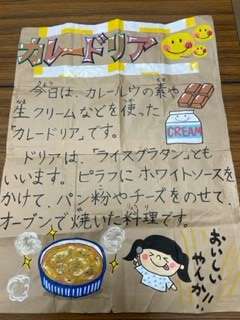 カレードリア
今日は、カレールウの素や
生クリームなどを使った
「カレードリア」です。
CREAM
ドリアは、「ライスグラタン」とも
いいます。ピラフにホワイトソースを
かけて、パン粉やチーズをのせて、
オーブンで焼いた料理です。
おいしい
やんか!!